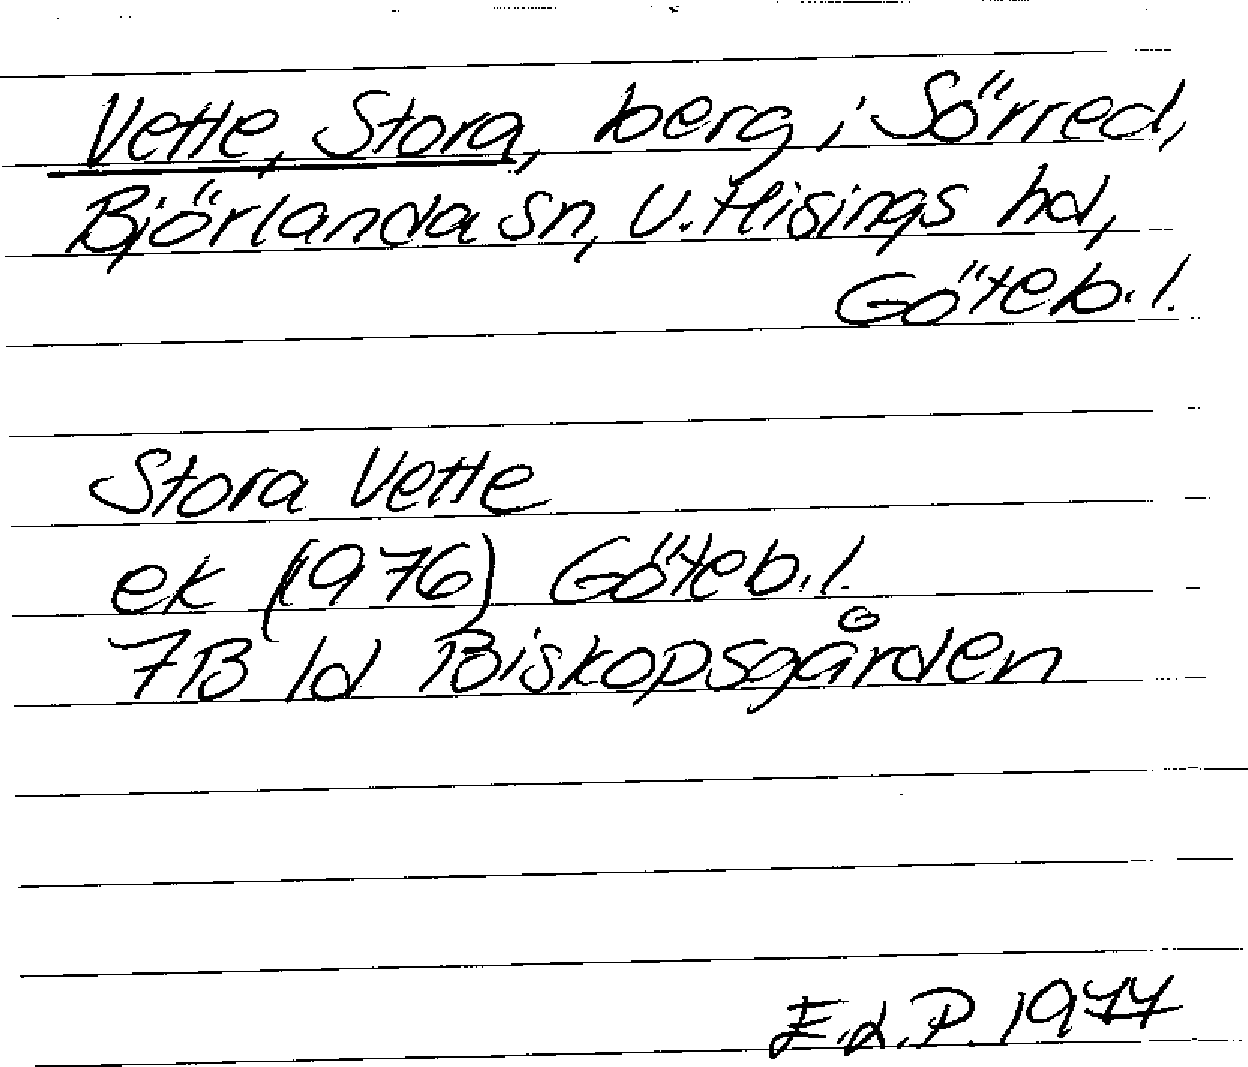 Vette, Stora, berg i Sörred,
Björlanda sn, V. Hisings hd,
Göteb. l.
Stora Vette
ek (1976) Göteb. l.
7B 1d Biskopsgården
E.d.P. 1977